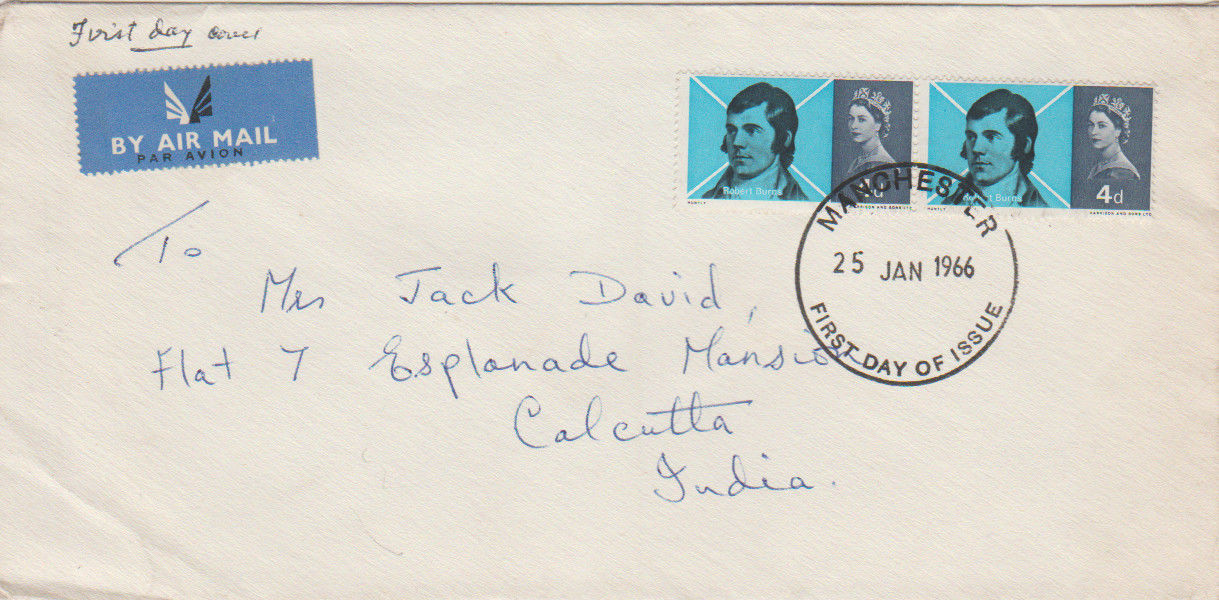 First day cover
BY AIR MAIL
PAR AVION
Robert Burns
4d
HUNTLY
HARRISON AND SONS LTD
Robert Burns
4d
HUNTLY
HARRISON AND SONS LTD
MANCHESTER
25 JAN 1966
FIRST DAY OF ISSUE
To
Mrs Jack David,
Flat 7 Esplanade Mansion
Calcutta
India.